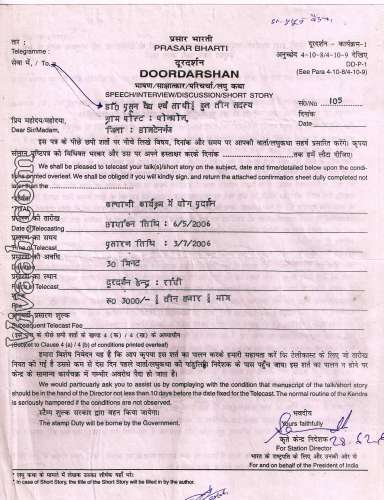 प्रसार भारती
PRASAR BHARTI
दूरदर्शन
DOORDARSHAN
भाषण/साक्षात्कार/परिचर्चा/लघु कथा
SPEECH/INTERVIEW/DISCUSSION/SHORT STORY
तार :
Telegramme :
सेवा में, / To,
दूरदर्शन - कार्यक्रम-1
अनुच्छेद 4-10-8/4-10-9 देखिए
DD-P-1
(See Para 4-10-8/4-10-9)
एवं साथी कुल तीन सदस्य
सं0/No 105
दिनांक
Date
प्रिय महोदय/महोदया,
Dear Sir/Madam,
ग्राम पोस्ट :
जिला :
इस पत्र के पीछे छपी शर्तों पर नीचे लिखे विषय, दिनांक और समय पर आपकी वार्ता/लघुकथा सहर्ष प्रसारित करेंगे। कृपया
संलग्न पुष्टिपत्र को विधिवत भरकर और उस पर अपने हस्ताक्षर करके दिनांक तक हमें लौटा दीजिए।
We shall be pleased to telecast your talk(s)/short story on the subject, date and time/detailed below upon the condi-
tions printed overleaf. We shall be obliged if you will kindly sign. and return the attached confirmation sheet duly completed not
later than the
कल्याणी कार्यक्रम में योग प्रदर्शन
प्रसारण की तारीख
Date of Telecasting
तिथि : 6/5/2006
प्रसारण का समय
Time of Telecast
प्रसारण तिथि : 3/7/2006
प्रसारण की अवधि
Duration
30 मिनट
प्रसारण का स्थान
Place of Telecast
दूरदर्शन केन्द्र : रांची
शुल्क
Fee
रू0 3000/- तीन हजार मात्र
प्रसारण शुल्क
Subsequent Telecast Fee
(इस पृष्ठ के पीछे छपी शर्तों के खण्ड 4 (क) / 4 (ख) के अध्याधीन)
(Subject to Clause 4 (a) / 4 (b) of conditions printed overleaf)
हमारा विशेष निवेदन यह है कि आप कृपया इस शर्त का पालन करके हमारी सहायता करें कि टेलीकास्ट के लिए जो तारीख
नियत की गई है उससे कम से कम दस दिन पहले वार्ता/लघुकथा की पांडुलिपि निदेशक के पास पहुँच जाय। इस शर्त का पालन न होने पर
केन्द्र के सामान्य कार्यचक्र में गम्भीर अवरोध पैदा हो जाता है।
We would particularly ask you to assist us by complying with the condition that manuscript of the talk/short story
should be in the hand of the Director not less than 10 days before the date fixed for the Telecast. The normal routine of the Kendra
is seriously hampered if the conditions are not observed.
स्टैम्प शुल्क सरकार द्वारा वहन किया जायेगा।
The stamp Duty will be borne by the Government.
भवदीय
Yours faithfully,
कृते केन्द्र निदेशक
For Station Director
भारत के राष्ट्रपति के लिए और उनकी ओर से
For and on behalf of the President of India
* लघु कथा के मामले में लेखक उसका शीर्षक यहाँ भरे।
* In case of Short Story, the title of the Short Story will be filled in by the author.